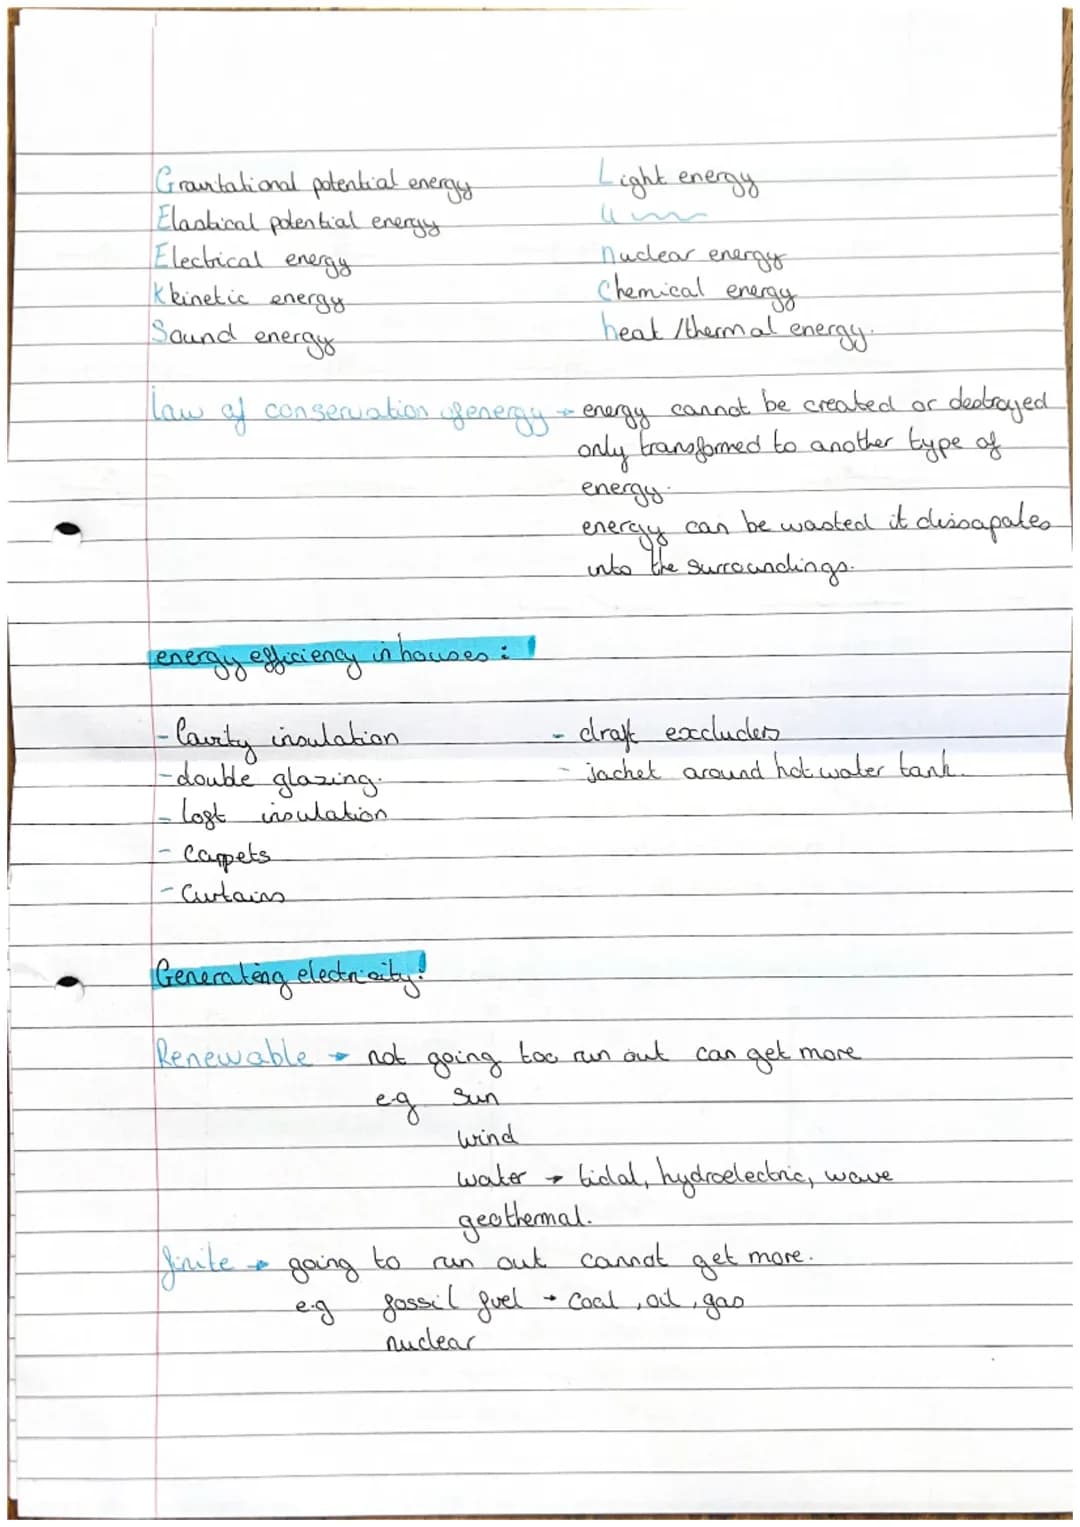 Gravitational potential energy
Elastical potential energy
Electrical energy
Kkinetic energy
Sound energy
Light energy
nuclear energy
Chemical energy
heat /thermal energy.
law of conservation of energy → energy cannot be created or destroyed
only transformed to another type of
energy.
energy can be wasted it dissapates
into the surroundings.
energy efficiency in houses :
- Cavity insulation
- double glazing.
- loft insulation
- Carpets
- Curtains
- draft excluders
- jacket around hot water tank.
Generating electricity:
Renewable → not going too run out can get more
e.g sun
wind
water → tidal, hydroelectric, wave
geothermal.
finite → going to run out cannot get more.
e.g fossil fuel → coal, oil, gas
nuclear